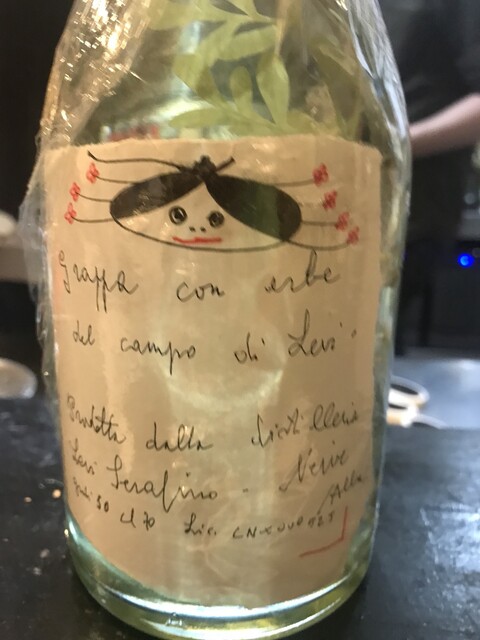 Grappa con erbe
del campo di Levi.
Prodotta dalla distilleria
Levi Serafino - Neive
Alba
gradi 50 cl 70 Lic.